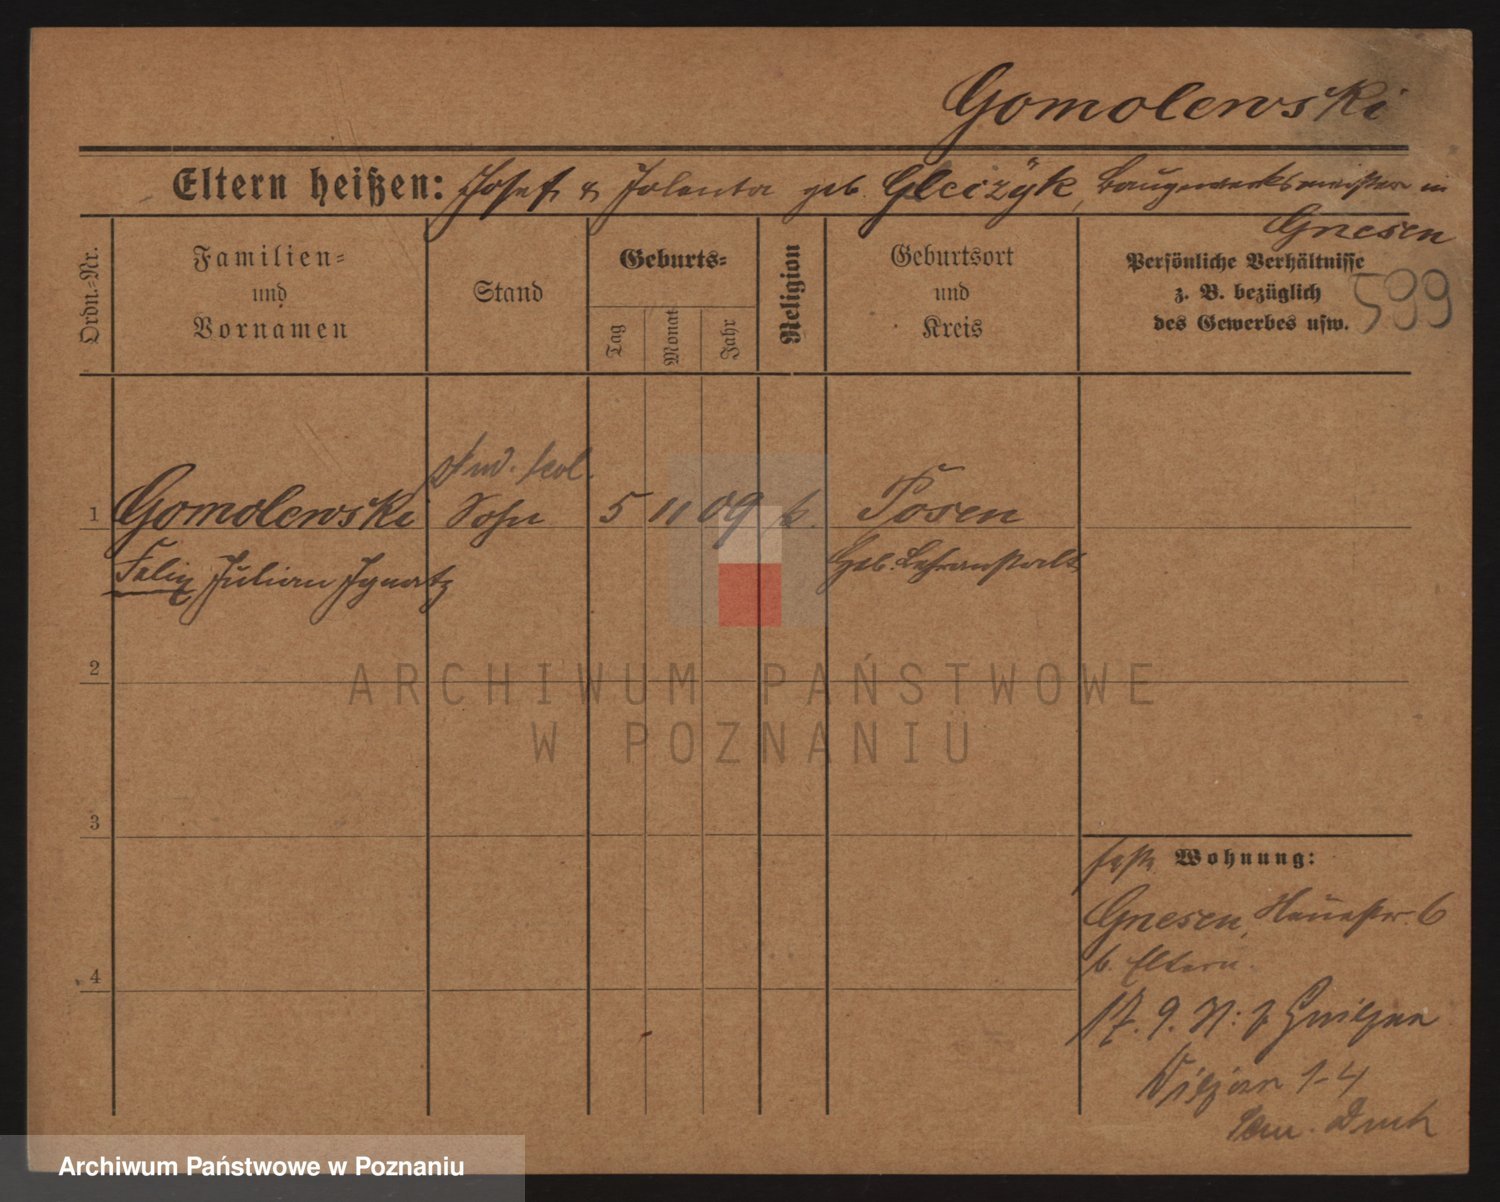 Gomolewski
Eltern heißen: Josef & Jolenta geb. Gleczyk, Baugewerksmeister in
Gnesen
Ordn.-Nr.
Familien-
und
Vornamen
Stand
Geburts-
Tag
Monat
Jahr
Religion
Geburtsort
und
Kreis
Persönliche Verhältnisse
z. B. bezüglich
des Gewerbes usw.
599
stud.
1 Gomolewski Sohn 5 11 09 k. Posen
Felix Julian Ignatz Geb. Lehranstalt
2
3
4
ARCHIWUM PAŃSTWOWE
W POZNANIU
Wohnung:
Gnesen, 6
b. Eltern.
17. 9.
1-4
Archiwum Państwowe w Poznaniu